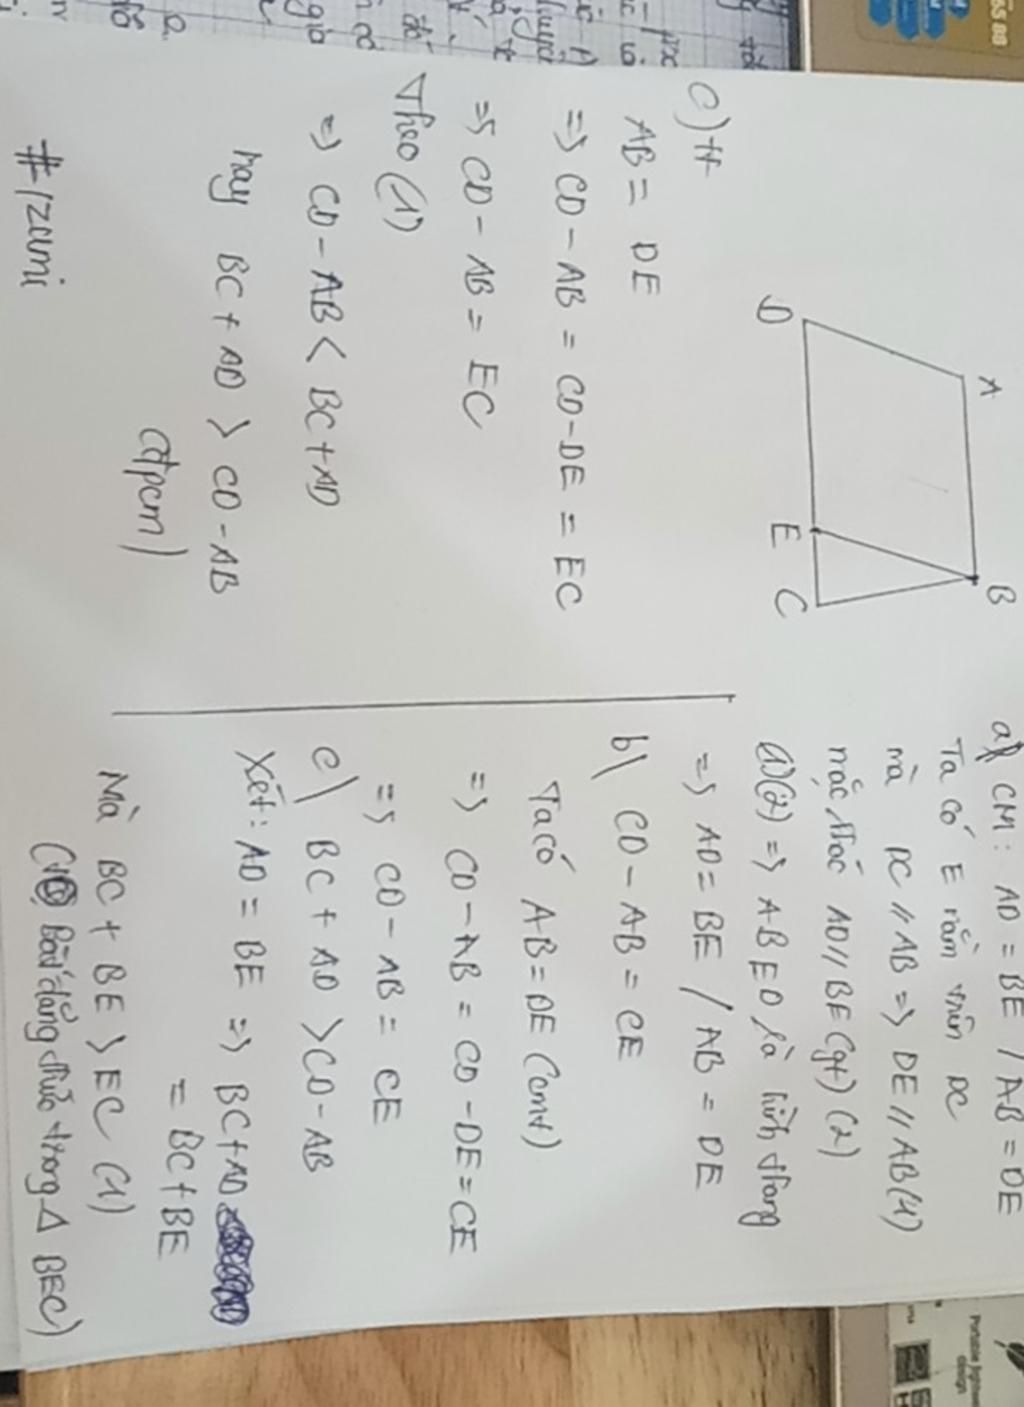 A
B
D
E
C
a) CM: AD = BE / AB = DE
Ta có E nằm trên DC
mà DC // AB => DE // AB (1)
mặc khác AD // BE (gt) (2)
(1)(2) => ABED là hình thang
=> AD = BE / AB = DE
b\ CD - AB = CE
Ta có AB = DE (cmt)
=> CD - AB = CD - DE = CE
=> CD - AB = CE
c\ BC + AD > CD - AB
Xét: AD = BE => BC + AD
= BC + BE
Mà BC + BE > EC (1)
Bất đẳng thức trong Δ BEC)
c) tt
AB = DE
=> CD - AB = CD - DE = EC
=> CD - AB = EC
Theo (1)
=> CD - AB < BC + AD
hay BC + AD > CD - AB
(đpcm)
#Izumi